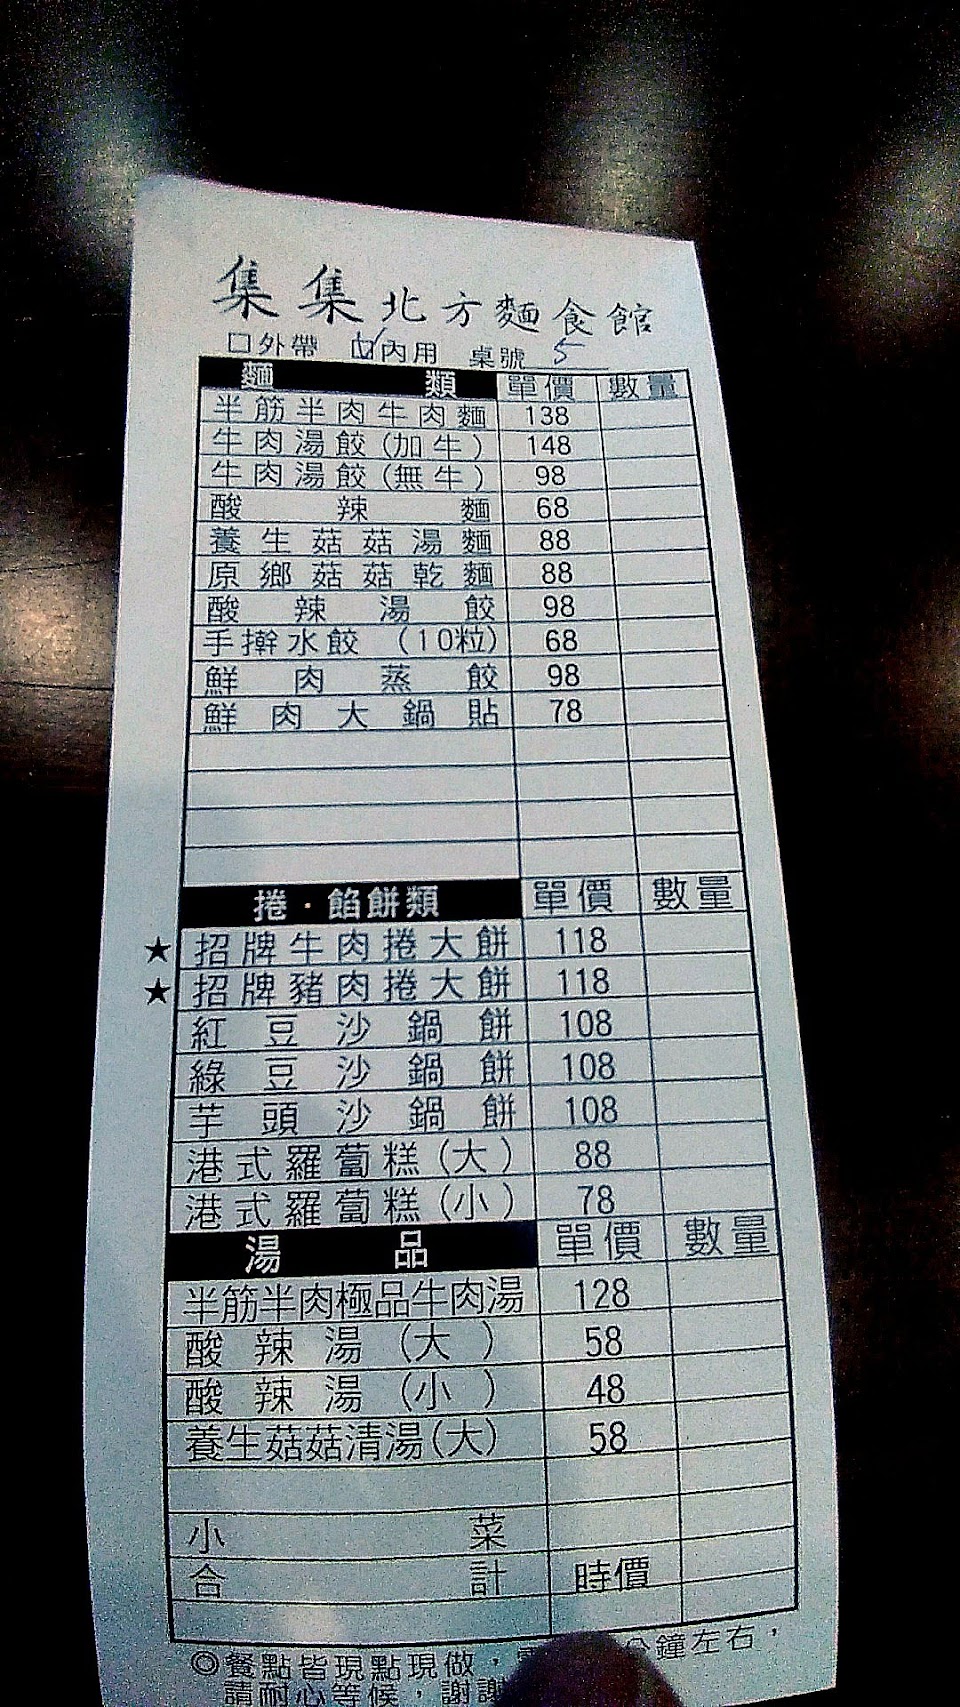 集集北方麵食館
□外帶 ☑內用 桌號 5
麵類 單價 數量
半筋半肉牛肉麵 138
牛肉湯餃(加牛) 148
牛肉湯餃(無牛) 98
酸辣麵 68
養生菇菇湯麵 88
原鄉菇菇乾麵 88
酸辣湯餃 98
手擀水餃 (10粒) 68
鮮肉蒸餃 98
鮮肉大鍋貼 78
捲·餡餅類 單價 數量
★ 招牌牛肉捲大餅 118
★ 招牌豬肉捲大餅 118
紅豆沙鍋餅 108
綠豆沙鍋餅 108
芋頭沙鍋餅 108
港式羅蔔糕(大) 88
港式羅蔔糕(小) 78
湯品 單價 數量
半筋半肉極品牛肉湯 128
酸辣湯(大) 58
酸辣湯(小) 48
養生菇菇清湯(大) 58
小菜
合計 時價
◎餐點皆現點現做, 分鐘左右,
請耐心等候,謝謝